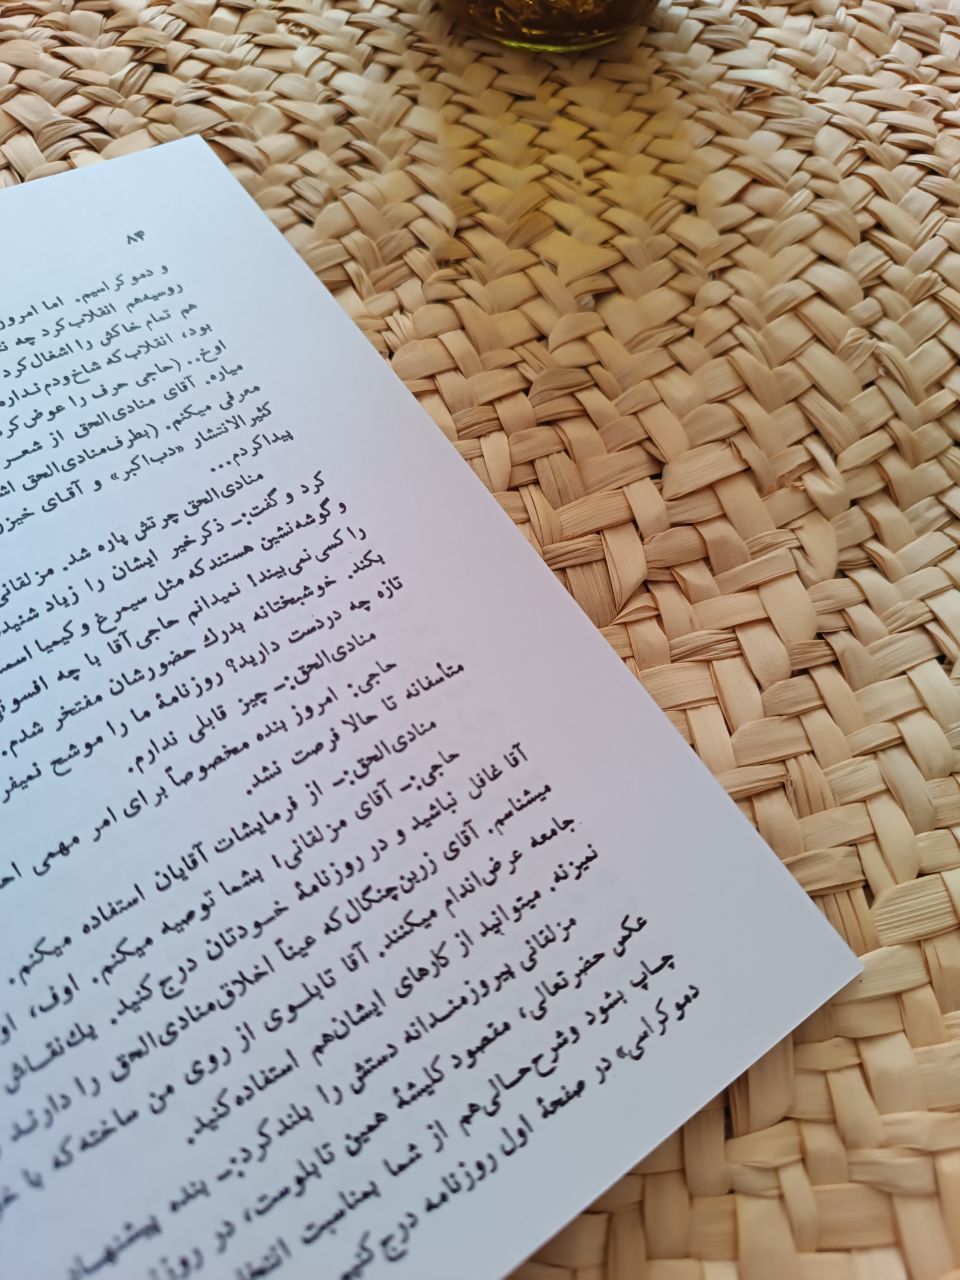 ۸۴
و دموکراسیم. اما امروز
روسیه‌هم انقلاب کرد چه
هم تمام خاکش را اشغال کرد
بود، انقلاب که شاخ‌ودم نداره
اوخ.. (حاجی حرف را عوض کرد
میاره. آقای منادی‌الحق از شعر
معرفی میکنم. (بطرف‌منادی‌الحق
کثیرالانتشار «دب‌اکبر» و آقای
پیدا کردم...
منادی‌الحق چرتش پاره شد. مزلقانی
کرد و گفت:ـ ذکرخیر ایشان را زیاد
و گوشه‌نشین هستند که مثل سیمرغ و کیمیا
را کسی نمی‌بیند! نمیدانم حاجی‌آقا با چه
بکند. خوشبختانه بدرك حضورشان مفتخر شدم.
تازه چه دردست دارید؟ روزنامهٔ ما را موشح
منادی‌الحق:ـ چیز قابلی ندارم.
حاجی: امروز بنده مخصوصاً برای امر مهمی
متأسفانه تا حالا فرصت نشد.
منادی‌الحق:ـ از فرمایشات آقایان استفاده میکنم.
حاجی:ـ آقای مزلقانی! بشما توصیه میکنم. اوف،
آقا غافل نباشید و در روزنامهٔ خودتان درج کنید. یك‌نقاش
میشناسم. آقای زرین‌چنگال که عیناً اخلاق‌منادی‌الحق را دارند
جامعه عرض‌اندام میکنند. آقا تابلوی از روی من ساخته که با
نمیزنه. میتوانید از کارهای ایشان‌هم استفاده کنید.
مزلقانی پیروزمندانه دستش را بلند کرد:ـ بنده
عکس حضرتعالی، مقصود کلیشهٔ همین تابلوست، در
چاپ بشود وشرح‌حالی‌هم از شما بمناسبت
دموکراسی» در صفحهٔ اول روزنامه درج کنیم